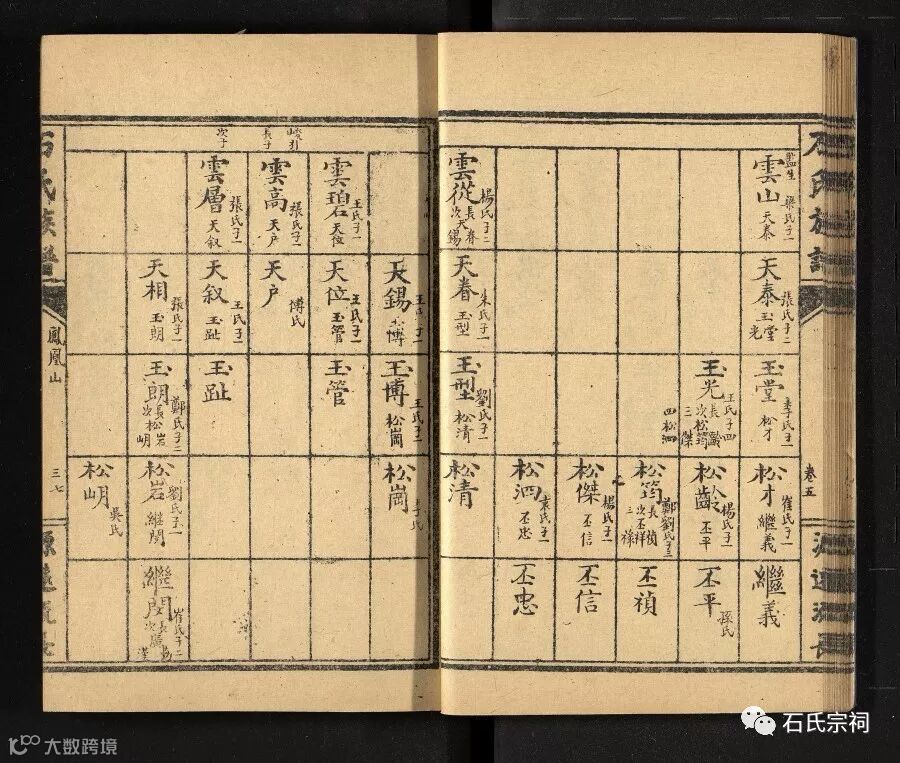 石氏族譜
卷五
源遠流長
雲山
監生
梁氏子一
天泰
雲從
楊氏子二
長天眷
次天錫
天泰
張氏子二
玉堂
光
天眷
朱氏子一
玉型
玉堂
李氏子一
松才
玉光
王氏子四
長松齡
次松筠
三傑
四松泗
玉型
劉氏子一
松清
松才
崔氏子一
繼義
松齡
楊氏子一
丕平
松筠
鄭劉氏子三
長丕禎
次丕祥
三祿
松傑
楊氏子一
丕信
松泗
袁氏子一
丕忠
松清
繼義
丕平
孫氏
丕禎
丕信
丕忠
峻引
長子
次子
雲碧
王氏子一
天位
雲高
張氏子一
天戶
雲層
張氏子一
天叙
天錫
王氏子一
玉博
天位
王氏子一
玉管
天戶
傅氏
天叙
王氏子一
玉趾
天相
張氏子一
玉朗
玉博
王氏子一
松崗
玉管
玉趾
玉朗
鄭氏子二
長松岩
次明
松崗
李氏
松岩
劉氏子一
繼閔
松明
吳氏
繼閔
崔氏子二
石氏族譜
鳳凰山
三七
源遠流長
石氏宗祠
大数跨境